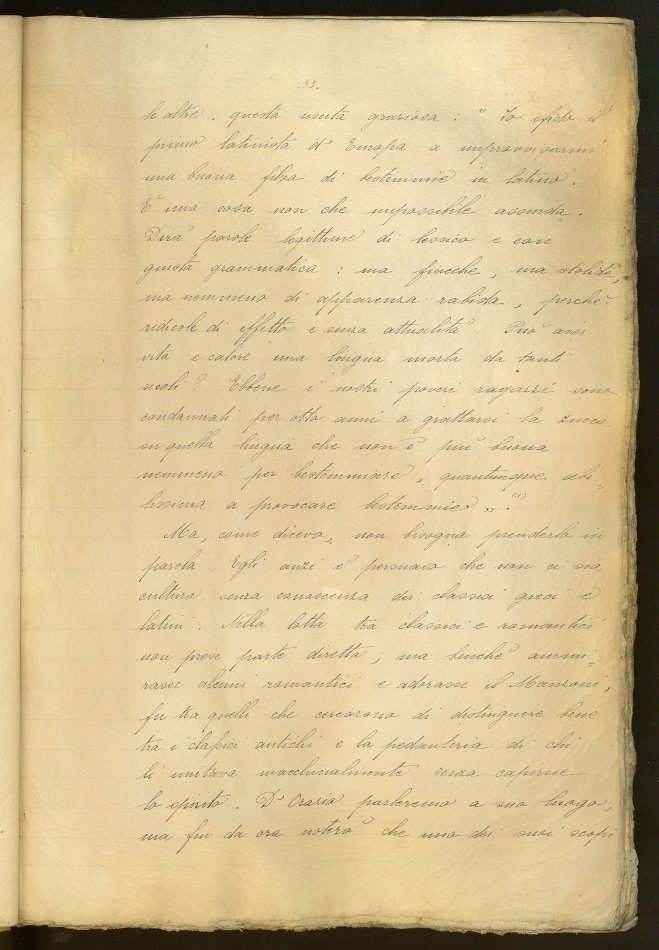 -35-
le altre, questa uscita graziosa: "Io sfido il
primo latinista d'Europa a improvvisarmi
una buona filza di bestemmie in latino.
È una cosa non che impossibile assurda.
Dirà parole legittime di lessico e con
giusta grammatica: ma fiacche, ma stolide,
ma nemmeno di apparenza rabida, perchè
ridicole di effetto e senza attualità. Può aver
vita e calore una lingua morta da tanti
secoli? Ebbene i nostri poveri ragazzi sono
condannati per otto anni a grattarsi la zucca
su quella lingua che non è più buona
nemmeno per bestemmiare, quantunque abi-
lissima a provocare bestemmie..."
Ma, come dicevo, non bisogna prenderlo in
parola. Egli anzi è persuaso che non ci sia
cultura senza conoscenza dei classici greci e
latini. Nella lotta tra classici e romantici
non prese parte diretta; ma benchè ammi-
rasse alcuni romantici e adorasse il Manzoni,
fu tra quelli che cercarono di distinguere bene
tra i classici antichi e la pedanteria di chi
li imitava macchinalmente senza capirne
lo spirito. D'Orazio parleremo a suo luogo,
ma fin da ora noterò che uno dei suoi scopi